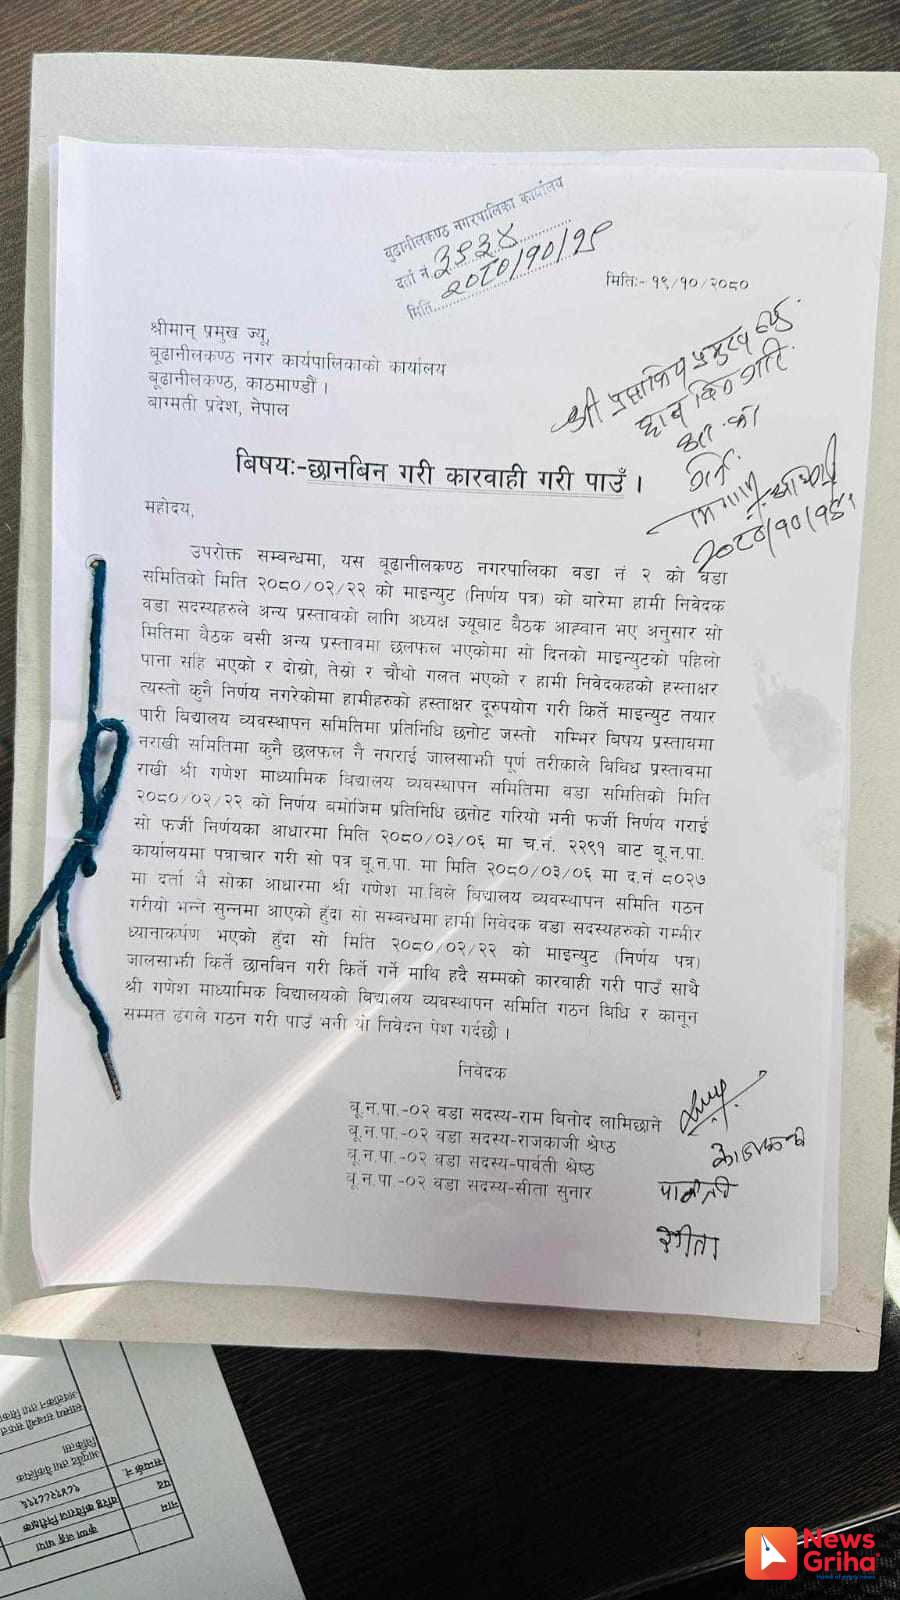 बुढानीलकण्ठ नगरपालिका कार्यालय
दर्ता नं. ३९३४
मिति २०८०/१०/१९
मितिः- १९/१०/२०८०
श्रीमान् प्रमुख ज्यू,
बूढानीलकण्ठ नगर कार्यपालिकाको कार्यालय
बूढानीलकण्ठ, काठमाण्डौं ।
बाग्मती प्रदेश, नेपाल
श्री प्रशासकिय प्रमुख ज्यू
छानबिन गरि
२०८०/१०/१९
विषयः-छानबिन गरी कारवाही गरी पाउँ ।
महोदय,
उपरोक्त सम्बन्धमा, यस बूढानीलकण्ठ नगरपालिका वडा नं २ को वडा
समितिको मिति २०८०/०२/२२ को माइन्युट (निर्णय पत्र) को बारेमा हामी निवेदक
वडा सदस्यहरुले अन्य प्रस्तावको लागि अध्यक्ष ज्यूबाट बैठक आह्वान भए अनुसार सो
मितिमा बैठक बसी अन्य प्रस्तावमा छलफल भएकोमा सो दिनको माइन्युटको पहिलो
पाना सहि भएको र दोस्रो, तेस्रो र चौथो गलत भएको र हामी निवेदकहको हस्ताक्षर
त्यस्तो कुनै निर्णय नगरेकोमा हामीहरुको हस्ताक्षर दूरुपयोग गरी किर्ते माइन्युट तयार
पारी विद्यालय व्यवस्थापन समितिमा प्रतिनिधि छनोट जस्तो गम्भिर बिषय प्रस्तावमा
नराखी समितिमा कुनै छलफल नै नगराई जालसाझी पूर्ण तरीकाले विविध प्रस्तावमा
राखी श्री गणेश माध्यामिक विद्यालय व्यवस्थापन समितिमा वडा समितिको मिति
२०८०/०२/२२ को निर्णय बमोजिम प्रतिनिधि छनोट गरियो भनी फर्जी निर्णय गराई
सो फर्जी निर्णयका आधारमा मिति २०८०/०३/०६ मा च.नं. २२९१ बाट बू.न.पा.
कार्यालयमा पत्राचार गरी सो पत्र बू.न.पा. मा मिति २०८०/०३/०६ मा द.नं ८०२७
मा दर्ता भै सोका आधारमा श्री गणेश मा.विले विद्यालय व्यवस्थापन समिति गठन
गरीयो भन्ने सुन्नमा आएको हुँदा सो सम्बन्धमा हामी निवेदक वडा सदस्यहरुको गम्भीर
ध्यानाकर्षण भएको हुँदा सो मिति २०८०/०२/२२ को माइन्युट (निर्णय पत्र)
जालसाझी किर्ते छानबिन गरी किर्ते गर्ने माथि हदै सम्मको कारवाही गरी पाउँ साथै
श्री गणेश माध्यामिक विद्यालयको बिद्यालय व्यवस्थापन समिति गठन बिधि र कानून
सम्मत ढंगले गठन गरी पाउँ भनी यो निवेदन पेश गर्दछौ ।
निवेदक
बू.न.पा.-०२ वडा सदस्य-राम बिनोद लामिछाने
बू.न.पा.-०२ वडा सदस्य-राजकाजी श्रेष्ठ
बू.न.पा.-०२ वडा सदस्य-पार्वती श्रेष्ठ
बू.न.पा.-०२ वडा सदस्य-सीता सुनार
पार्वती
सीता
सम्पर्क नं.
पद
नाम
News
Griha